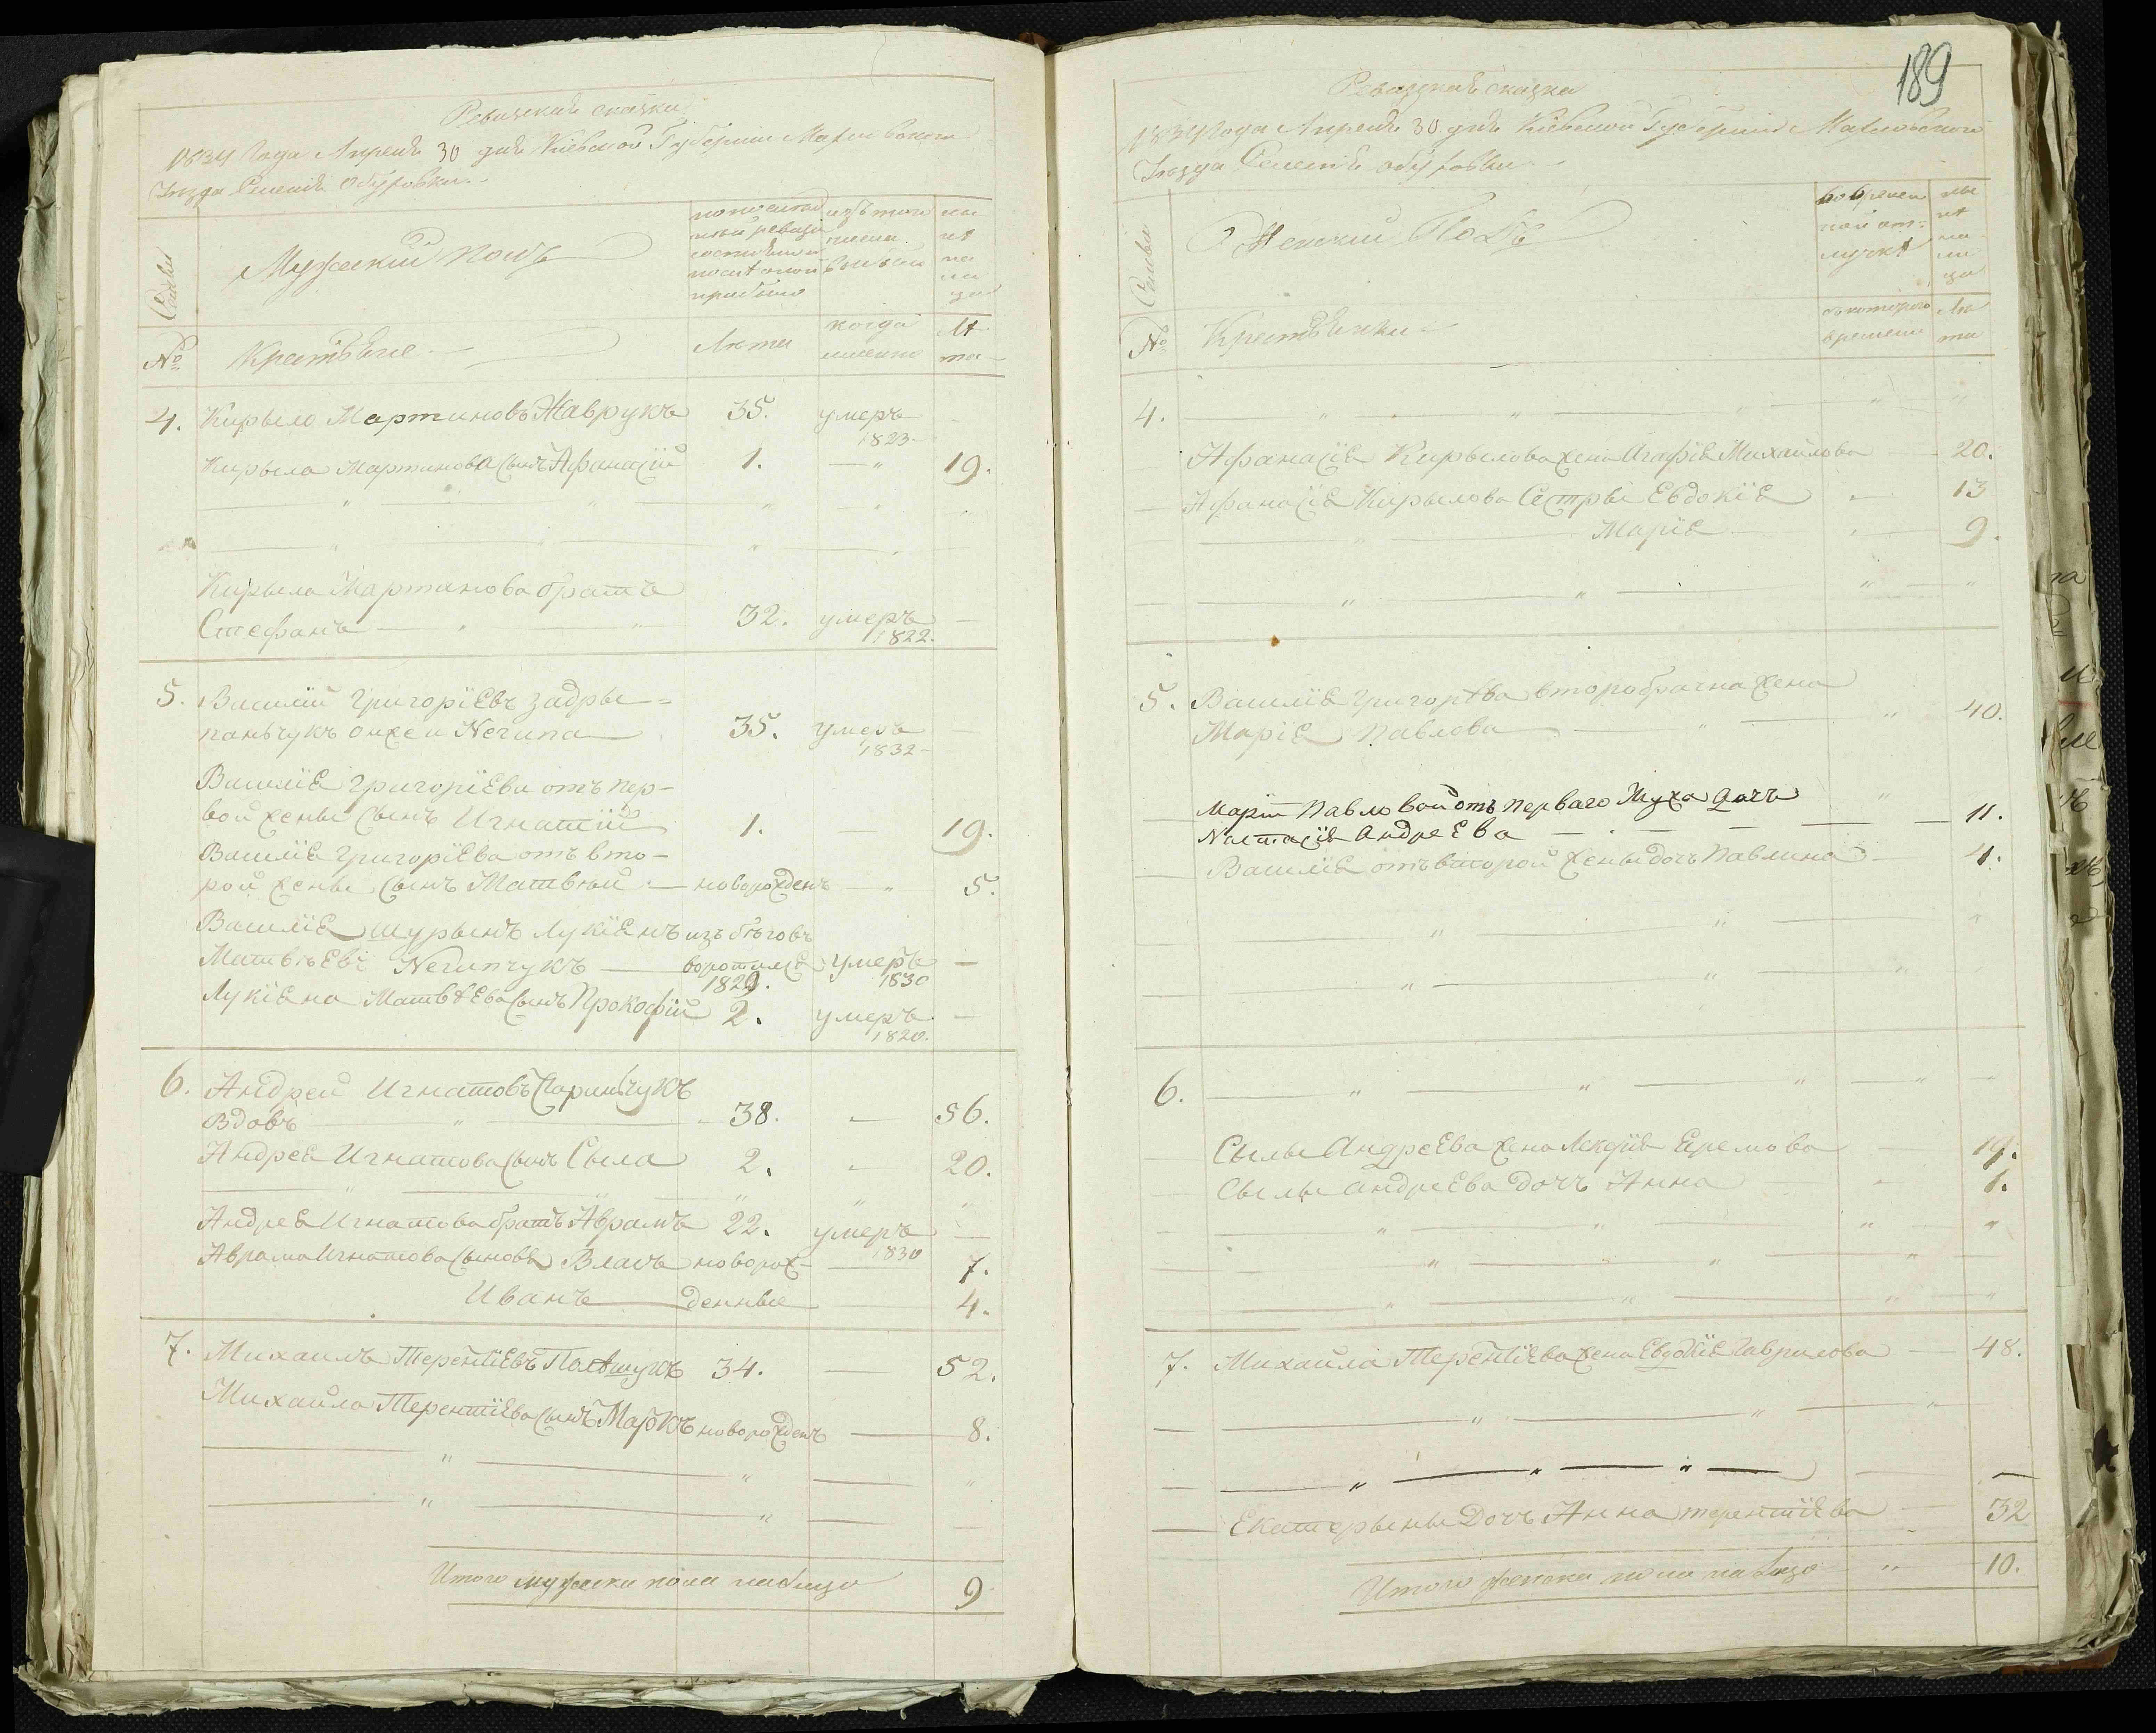 Ревизская сказка
1834 Года Апреля 30 дня Киевской Губернии Махновского
Уезда Селения Обуховки
Семьи
Мужеский полъ
по последней ревизии состояло и после оной прибыло
изъ того числа выбыло
ныне на лицо
№
Крестьяне
Лѣта
когда именно
Лѣта
4. Кирыло Мартиновъ Жаврукъ 35. умеръ 1823 —
Кирыла Мартинова сынъ Афанасій 1. — 19.
Кирыла Мартинова братъ
Стефанъ 32. умеръ 1822. —
5. Василій Григоріевъ Задры=
паньчукъ онже и Нечипа 35. умеръ 1832 —
Василія Григоріева отъ пер-
вой жены сынъ Игнатій 1. — 19.
Василія Григоріева отъ вто-
рой жены сынъ Матвѣй новорожденъ — 5.
Василія шурынъ Лукіянъ изъ бѣговъ
Матвѣевъ Нечипчукъ воротился 1829. умеръ 1830 —
Лукіяна Матвѣева сынъ Прокофій 2. умеръ 1820. —
6. Андрей Игнатовъ
Вдовъ 38. — 56.
Андрея Игнатова сынъ Сыла 2. — 20.
Андрея Игнатова братъ Аврамъ 22. умеръ 1830 —
Аврама Игнатова сыновя Власъ новорож- 7.
Иванъ денные 4.
7. Михаилъ Терентіевъ Полѣшукъ 34. — 52.
Михайла Терентіева сынъ Маркъ новорожденъ — 8.
Итого мужеска пола налицо 9
189
Ревизская сказка
1834 Года Апреля 30 дня Киевской Губернии Махновского
Уезда Селения Обуховки
Семьи
Женский Полъ
во временной отлучкѣ
ныне на лицо
№
Крестьянки
съ которого времени
Лѣта
4.
Афанасія Кирылова жена Агафія Михайлова 20.
Афанасія Кирылова Сестры Евдокія 13
Марія 9.
5. Василія Григорѣва второбрачна жена
Марія Павлова 40.
Маріи Павловой отъ перваго Мужа дочъ
Настасія Андреева 11.
Василія отъ второй жены дочъ Павлина 4.
6.
Сылы Андреева жена Лекерія Еремова 19.
Сылы Андреева дочъ Анна 1.
7. Михайла Терентіева жена Евдокія Гаврилова 48.
Екатерыны Дочъ Анна терентіева 32
Итого женска пола на лицо 10.